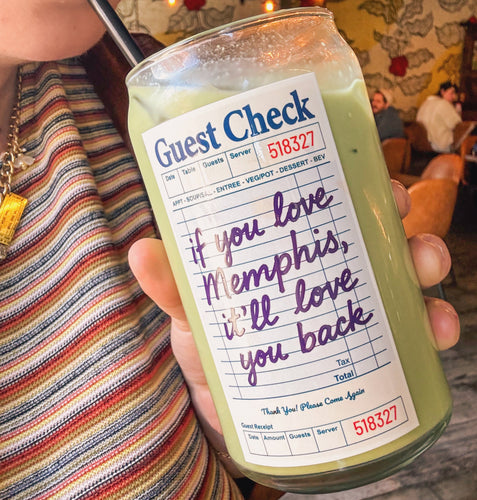 Guest Check
Date Table Guests Server 518327
APPT - SOUP/SAL - ENTREE - VEG/POT - DESSERT - BEV
if you love
Memphis,
it'll love
you back
Tax
Total
Thank You! Please Come Again
Guest Receipt
Date Amount Guests Server 518327